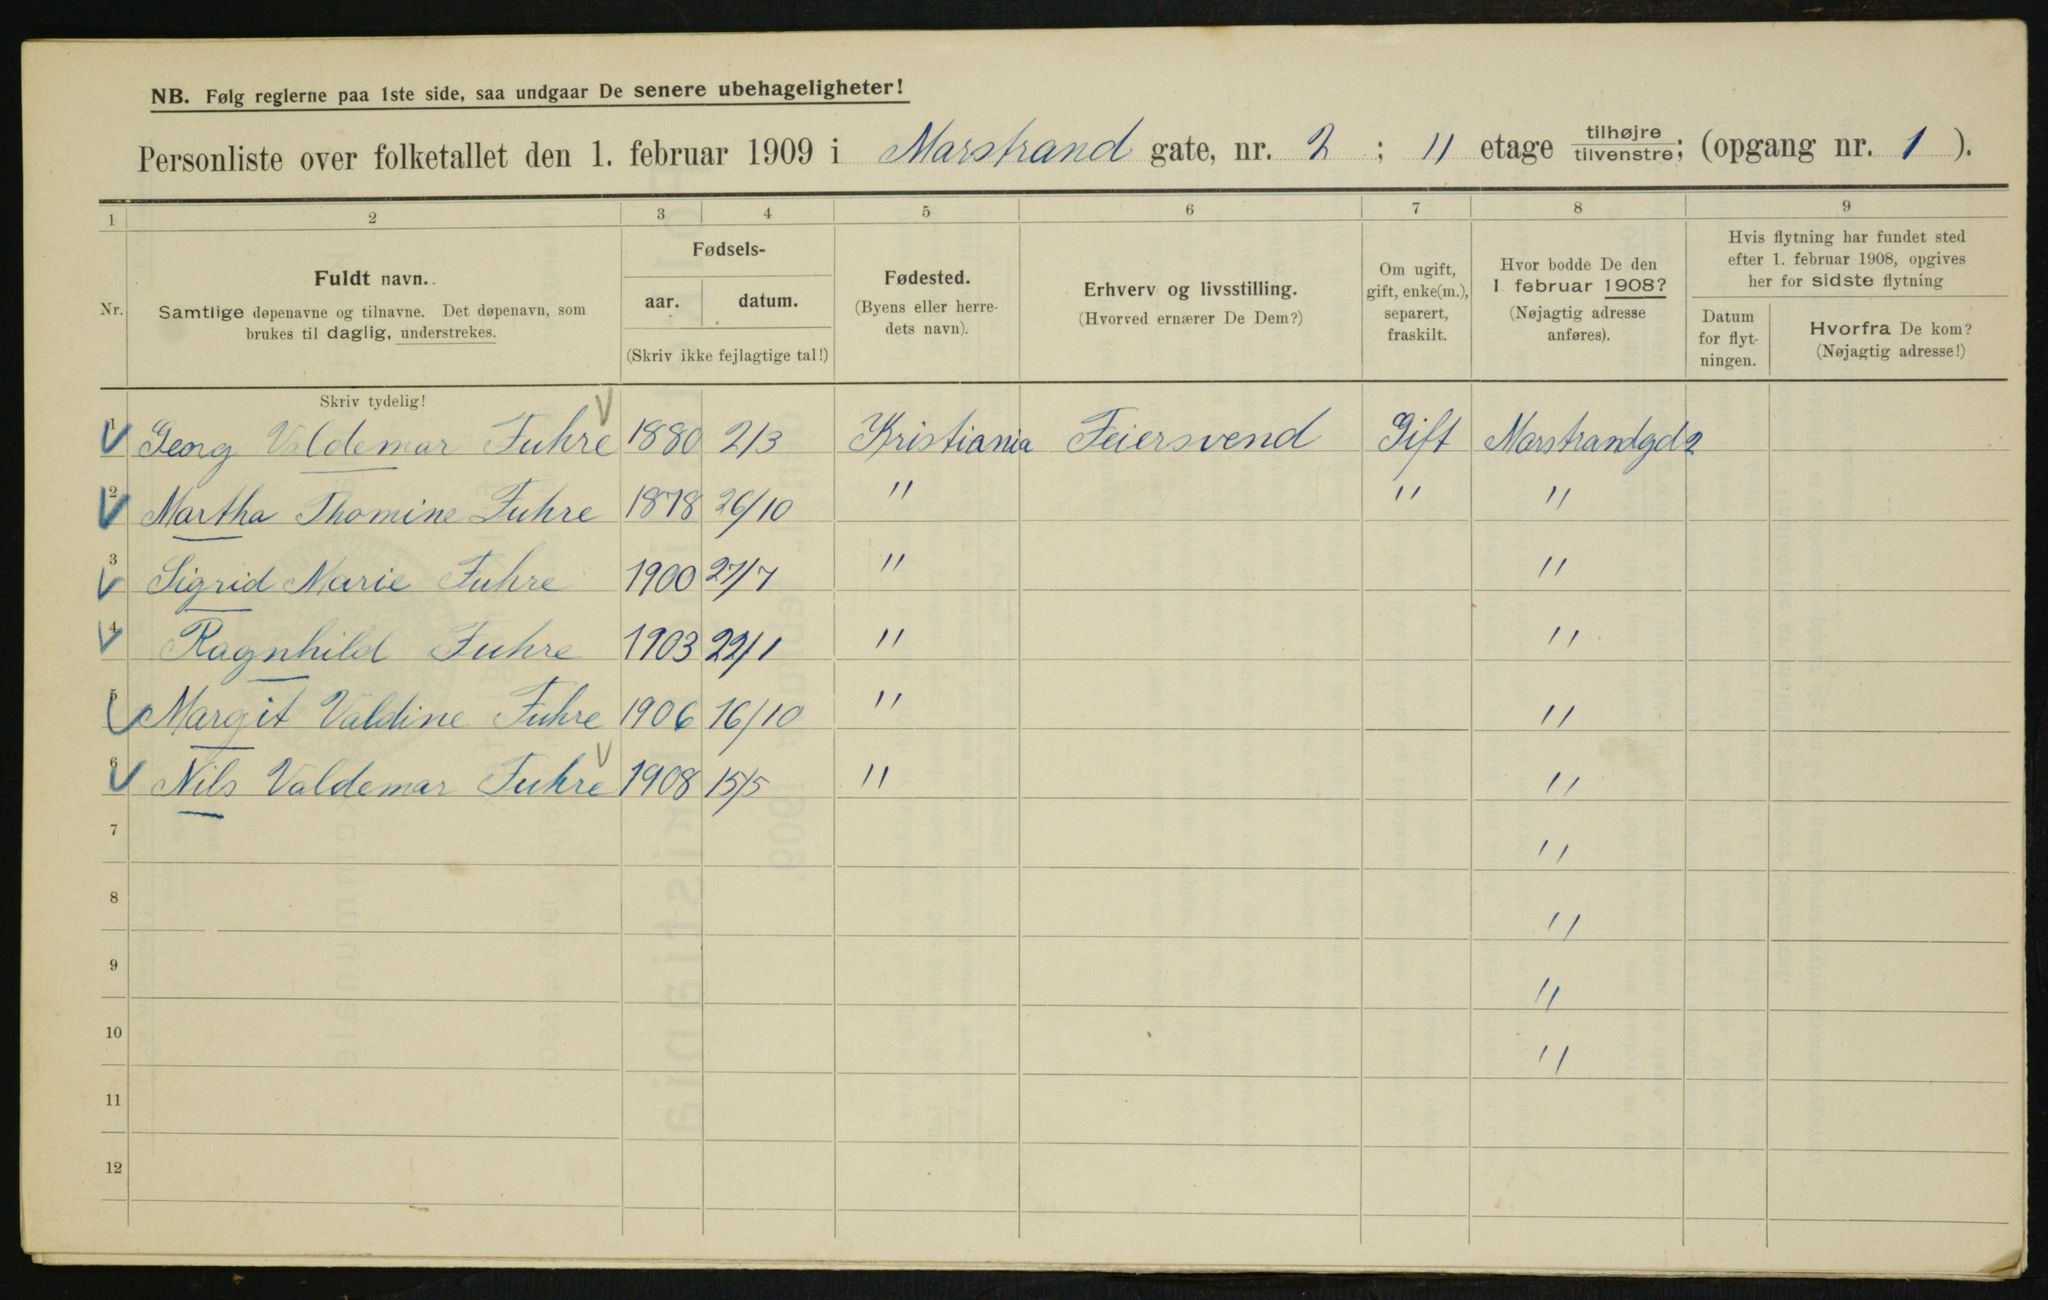 NB. Følg reglerne paa 1ste side, saa undgaar De senere ubehageligheter!
Personliste over folketallet den 1. februar 1909 i Marstrand gate, nr. 2 ; 11 etage tilhøjre tilvenstre; (opgang nr. 1 ).
1 2 3 4 5 6 7 8 9
Nr.
Fuldt navn.
Samtlige døpenavne og tilnavne. Det døpenavn, som
brukes til daglig, understrekes.
Skriv tydelig!
Fødsels-
aar. datum.
(Skriv ikke fejlagtige tal!)
Fødested.
(Byens eller herre-
dets navn).
Erhverv og livsstilling.
(Hvorved ernærer De Dem?)
Om ugift,
gift, enke(m.),
separert,
fraskilt.
Hvor bodde De den
1 februar 1908?
(Nøjagtig adresse
anføres).
Hvis flytning har fundet sted
efter 1. februar 1908, opgives
her for sidste flytning
Datum
for flyt-
ningen.
Hvorfra De kom?
(Nøjagtig adresse!)
1 Georg Valdemar Fuhre 1880 2/3 Kristiania Feiersvend Gift Marstrandgd 2
2 Martha Thomine Fuhre 1878 26/10 " " "
3 Sigrid Marie Fuhre 1900 27/7 " "
4 Ragnhild Fuhre 1903 22/1 " "
5 Margit Valdine Fuhre 1906 16/10 " "
6 Nils Valdemar Fuhre 1908 15/5 " "
7 "
8 "
9 "
10 "
11
12